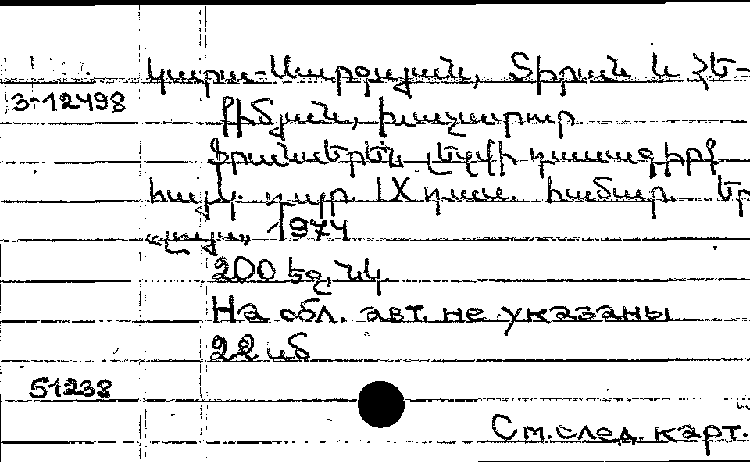 Կարա-Սարգսյան, Տիրան և Հե-
3-12498
քիմյան, Խաչատուր
Ֆրանսերեն լեզվի դասագիրք
հայկ. դպր. IX դաս. համար. Եր
«Լույս» 1974
200 էջ. նկ
На обл. авт. не указаны
22 սմ
51238
См. след. карт.